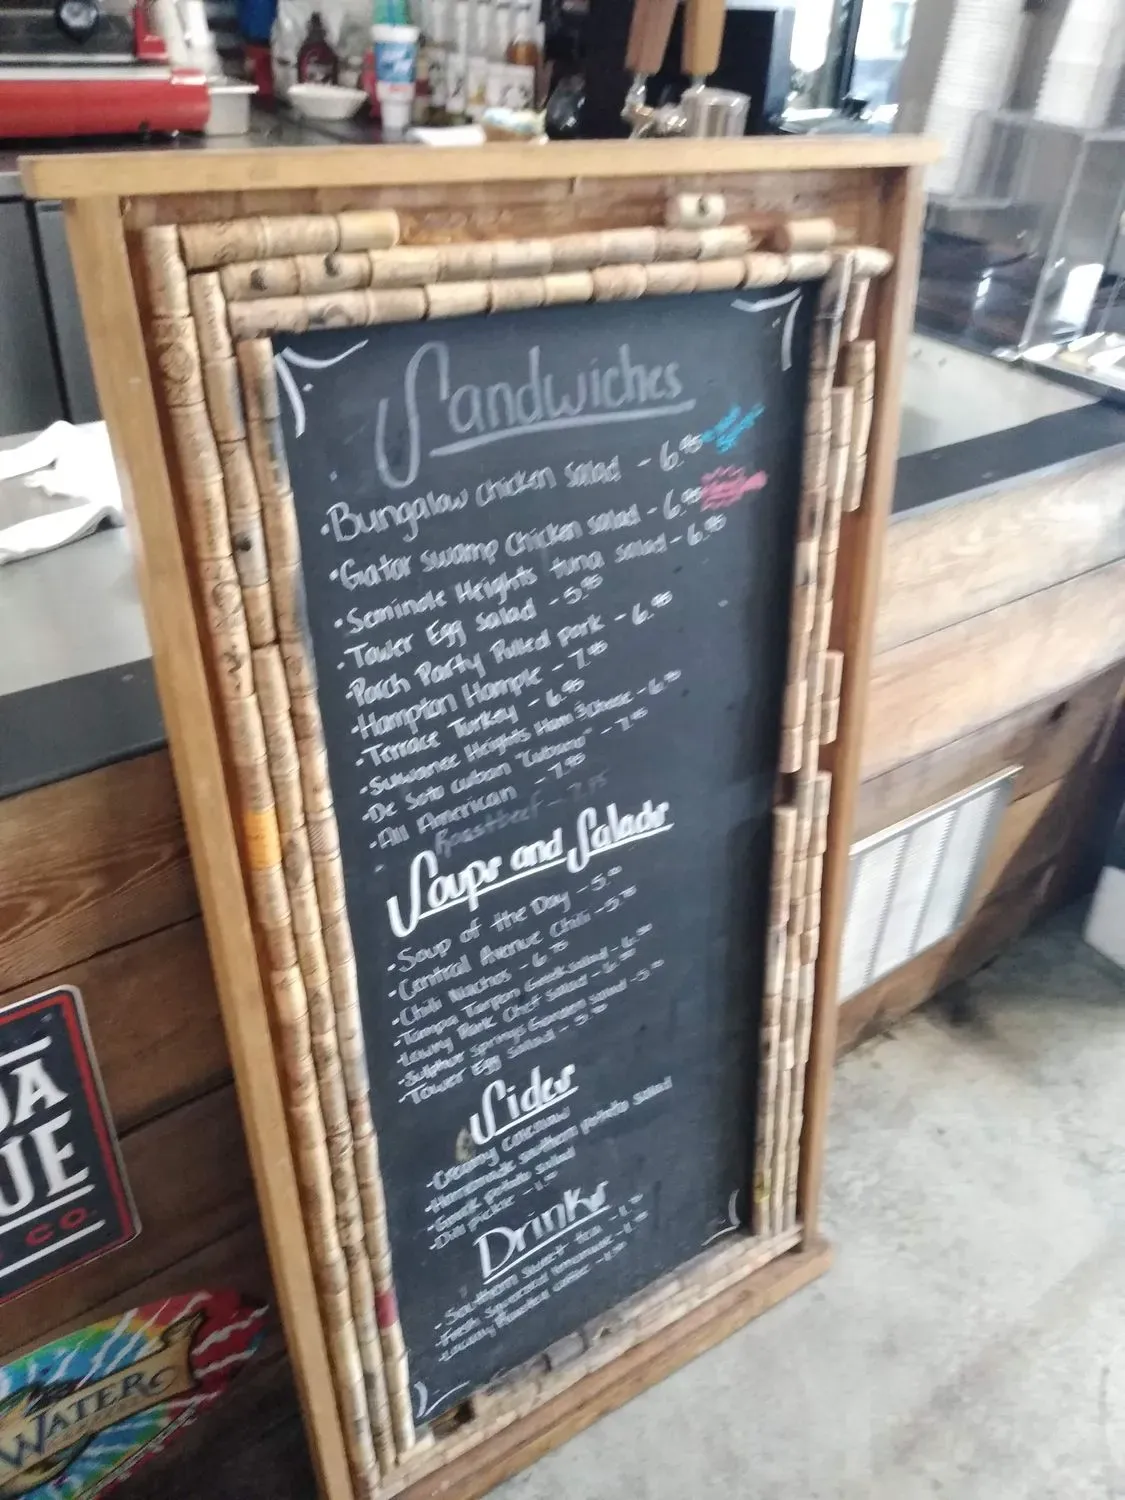 Sandwiches
•Bungalaw chicken salad - 6.95
•Gator swamp Chicken salad - 6.95
•Seminole Heights tuna salad - 6.95
•Tower Egg salad - 5.95
•Porch Party Pulled pork - 6.95
•Hampton Hample - 7.95
•Terrace Turkey - 6.95
•Suwanee Heights Ham & Cheese - 6.95
•De Soto cuban "Cubano" - 7.95
•All American - 7.95
Roastbeef - 7.75
Soups and Salads
•Soup of the Day - 5.
•Central Avenue Chili - 5.
•Chili Nachos - 6.
•Tampa Tarpon Greek salad - 6.
•Lowry Park Chef Salad - 6.
•Sulphur Springs Garden salad - 5.
•Tower Egg salad - 5.
Sides
•Creamy coleslaw
•Homemade southern potato salad
•Greek potato salad
•Dill pickle - 1.
Drinks
•Southern sweet tea - 1.
•Fresh Squeezed lemonade - 1.
•Locally Roasted coffee - 1.
DA
UE
CO.
WATER